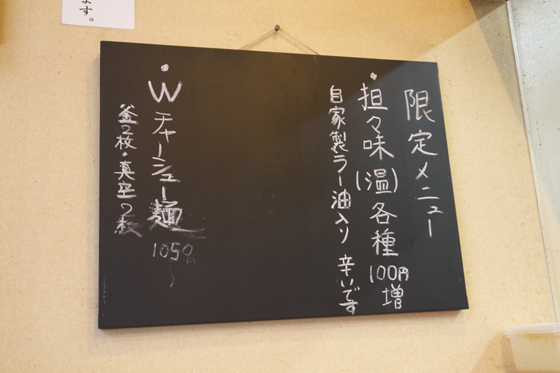 限定メニュー
・担々味(温)各種
100円増
自家製ラー油入り 辛いです
・Wチャーシュー麺
1050〜
釜2枚・真空2枚
ます。